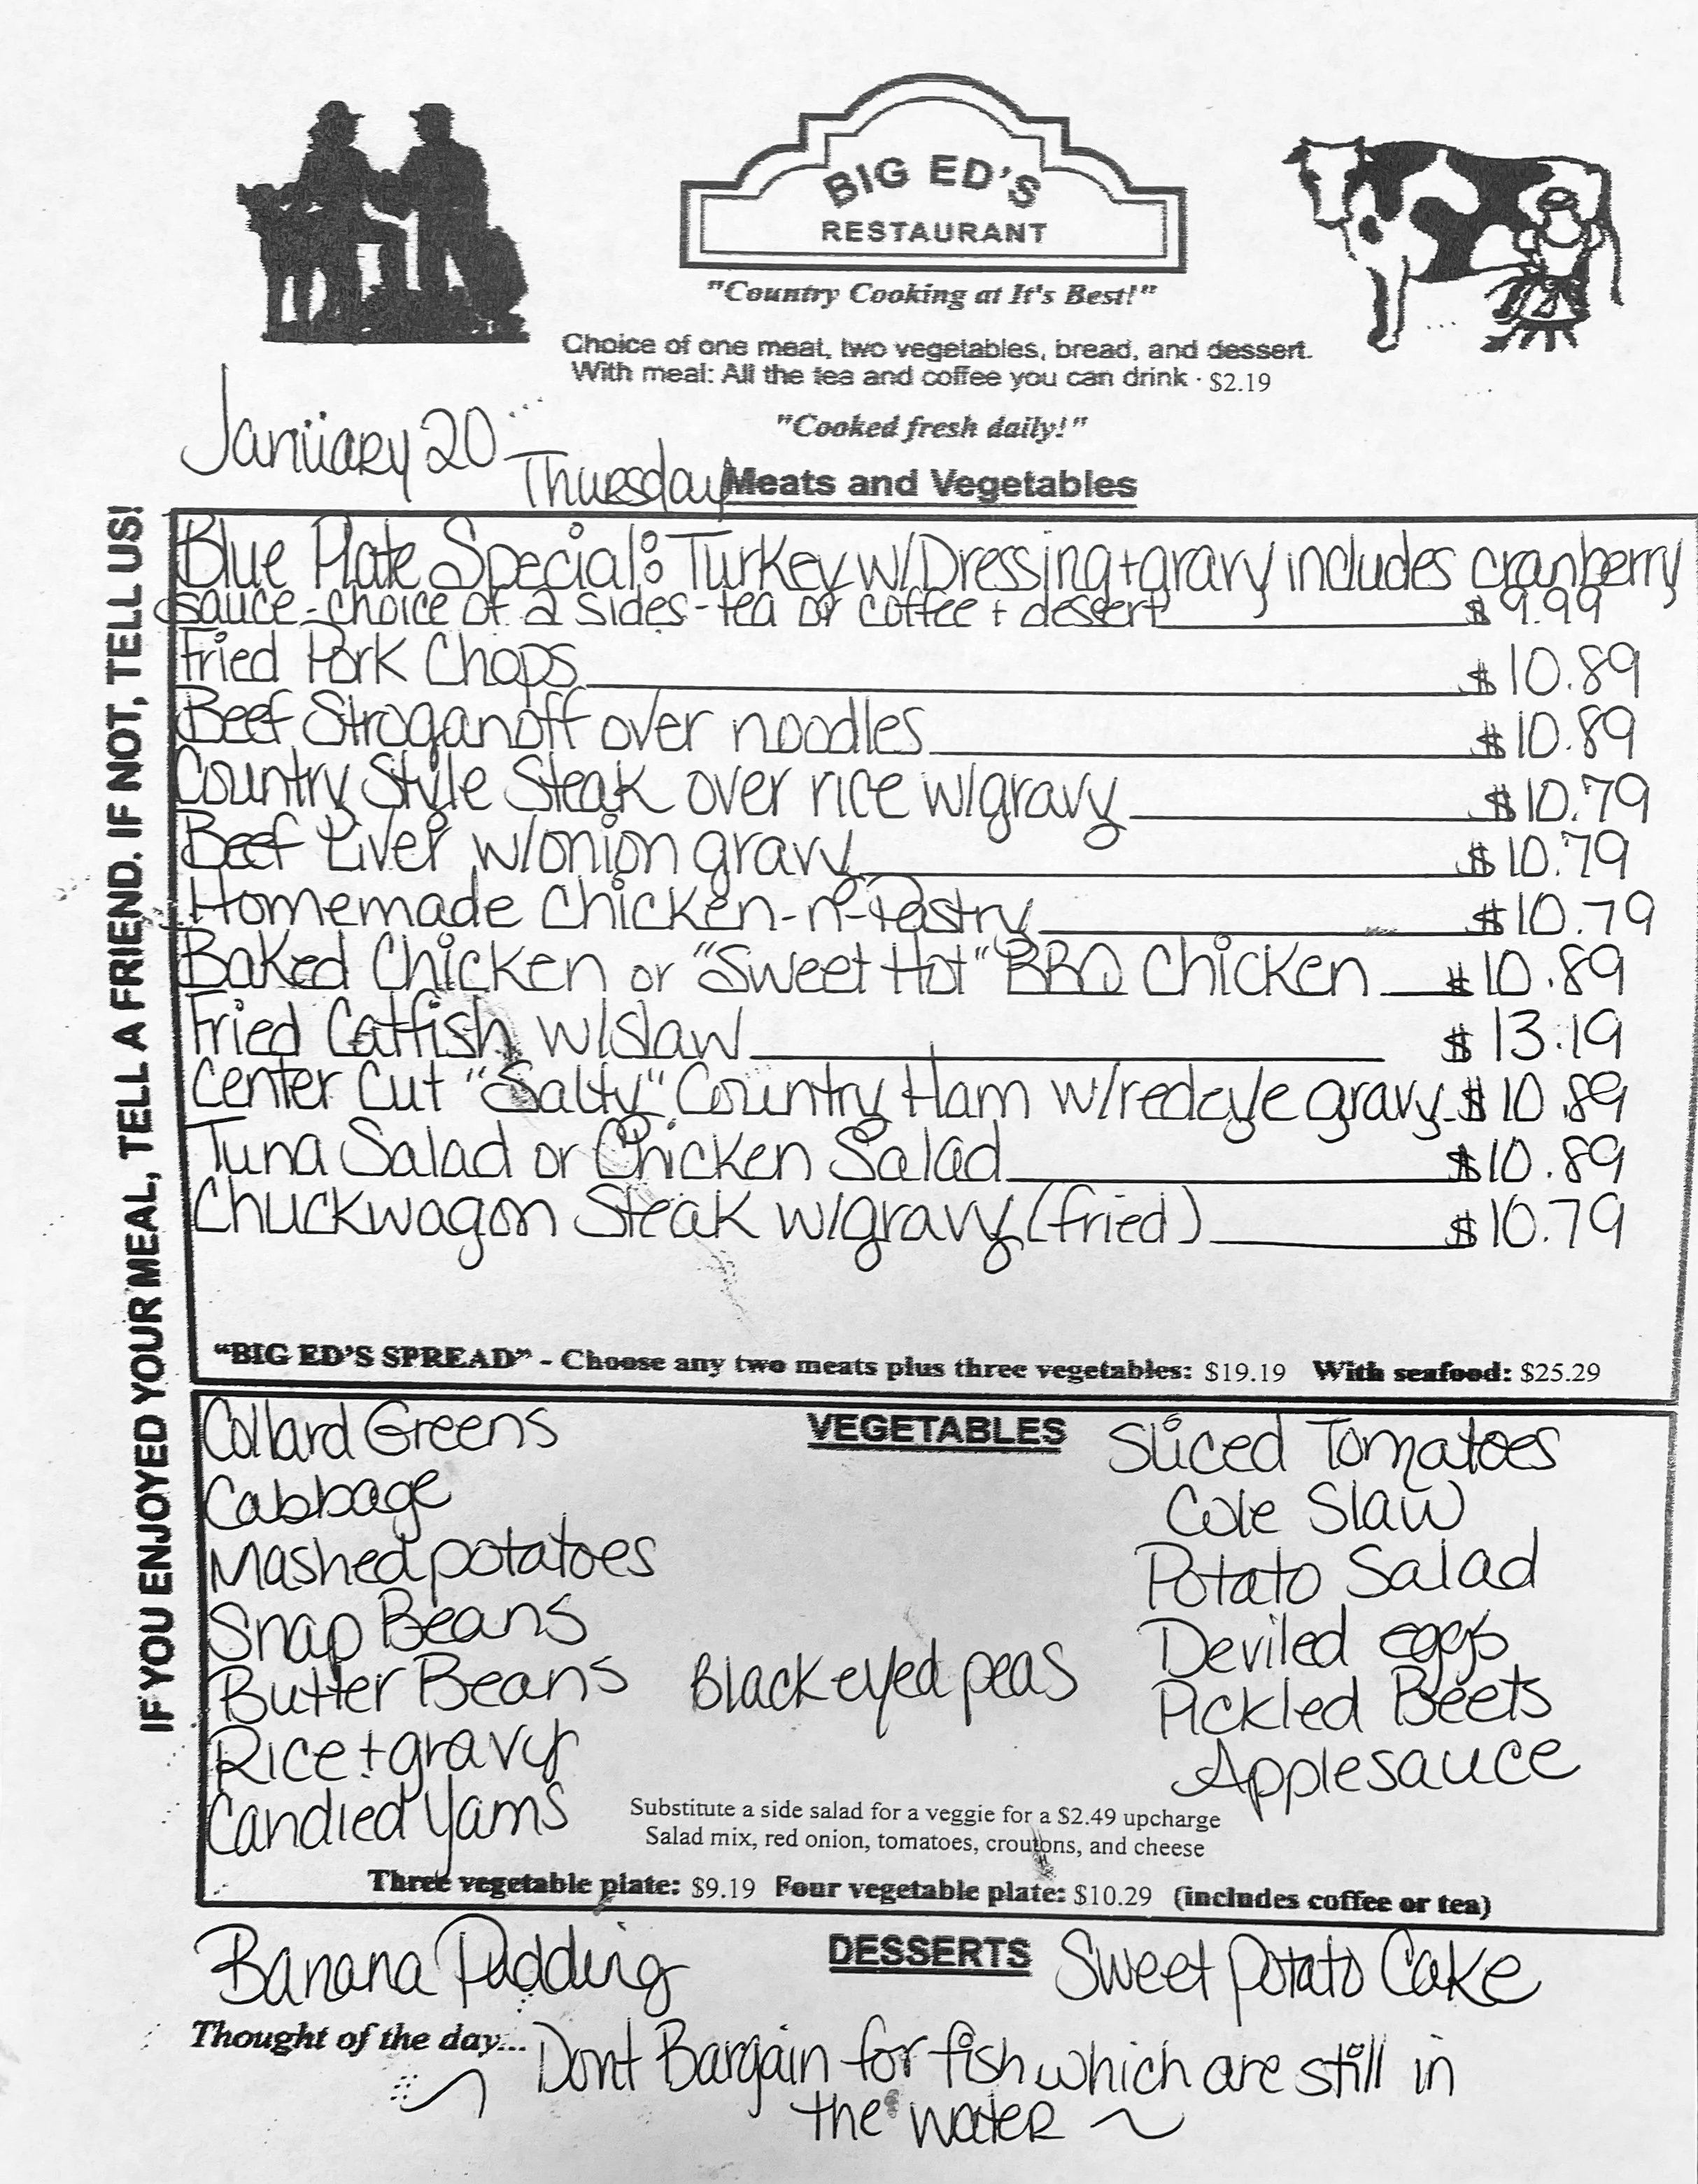 BIG ED'S
RESTAURANT
"Country Cooking at It's Best!"
Choice of one meat, two vegetables, bread, and dessert.
With meal: All the tea and coffee you can drink · $2.19
"Cooked fresh daily!"
January 20 Thursday
Meats and Vegetables
IF YOU ENJOYED YOUR MEAL, TELL A FRIEND. IF NOT, TELL US!
Blue Plate Special: Turkey w/Dressing + gravy includes cranberry
sauce - choice of 2 sides - tea or coffee + dessert $9.99
Fried Pork Chops $10.89
Beef Stroganoff over noodles $10.89
Country Style Steak over rice w/gravy $10.79
Beef Liver w/onion gravy $10.79
Homemade Chicken-n-Pastry $10.79
Baked Chicken or "Sweet Hot" BBQ Chicken $10.89
Fried Catfish w/slaw $13.19
Center Cut "Salty" Country Ham w/redeye gravy $10.89
Tuna Salad or Chicken Salad $10.89
Chuckwagon Steak w/gravy (fried) $10.79
"BIG ED'S SPREAD" - Choose any two meats plus three vegetables: $19.19 With seafood: $25.29
VEGETABLES
Collard Greens
Cabbage
Mashed potatoes
Snap Beans
Butter Beans
Rice + gravy
Candied Yams
Blackeyed peas
Sliced Tomatoes
Cole Slaw
Potato Salad
Deviled eggs
Pickled Beets
Applesauce
Substitute a side salad for a veggie for a $2.49 upcharge
Salad mix, red onion, tomatoes, croutons, and cheese
Three vegetable plate: $9.19 Four vegetable plate: $10.29 (includes coffee or tea)
DESSERTS
Banana Pudding
Sweet Potato Cake
Thought of the day... Dont Bargain for fish which are still in
the water ~